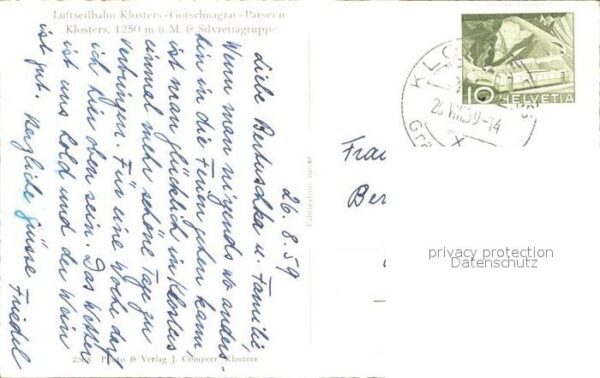 Luftseilbahn Klosters-Gotschnagrat-Parsenn
Klosters, 1250 m ü. M. & Silvrettagruppe
26.8.59
Liebe Bertuschka u. Familie,
Wenn man nirgends wo anders
hin in die Ferien gehen kann,
ist man glücklich in Klosters
einmal mehr schöne Tage zu
verbringen. Für eine Woche darf
ich hier oben sein. Das Wetter
ist uns hold und der Wein
ist gut. Herzliche Grüsse Friedel
Photo & Verlag J. Compert Klosters
KLOSTERS
26.VIII.59-14
10
HELVETIA
Frau
Ber
privacy protection
Datenschutz